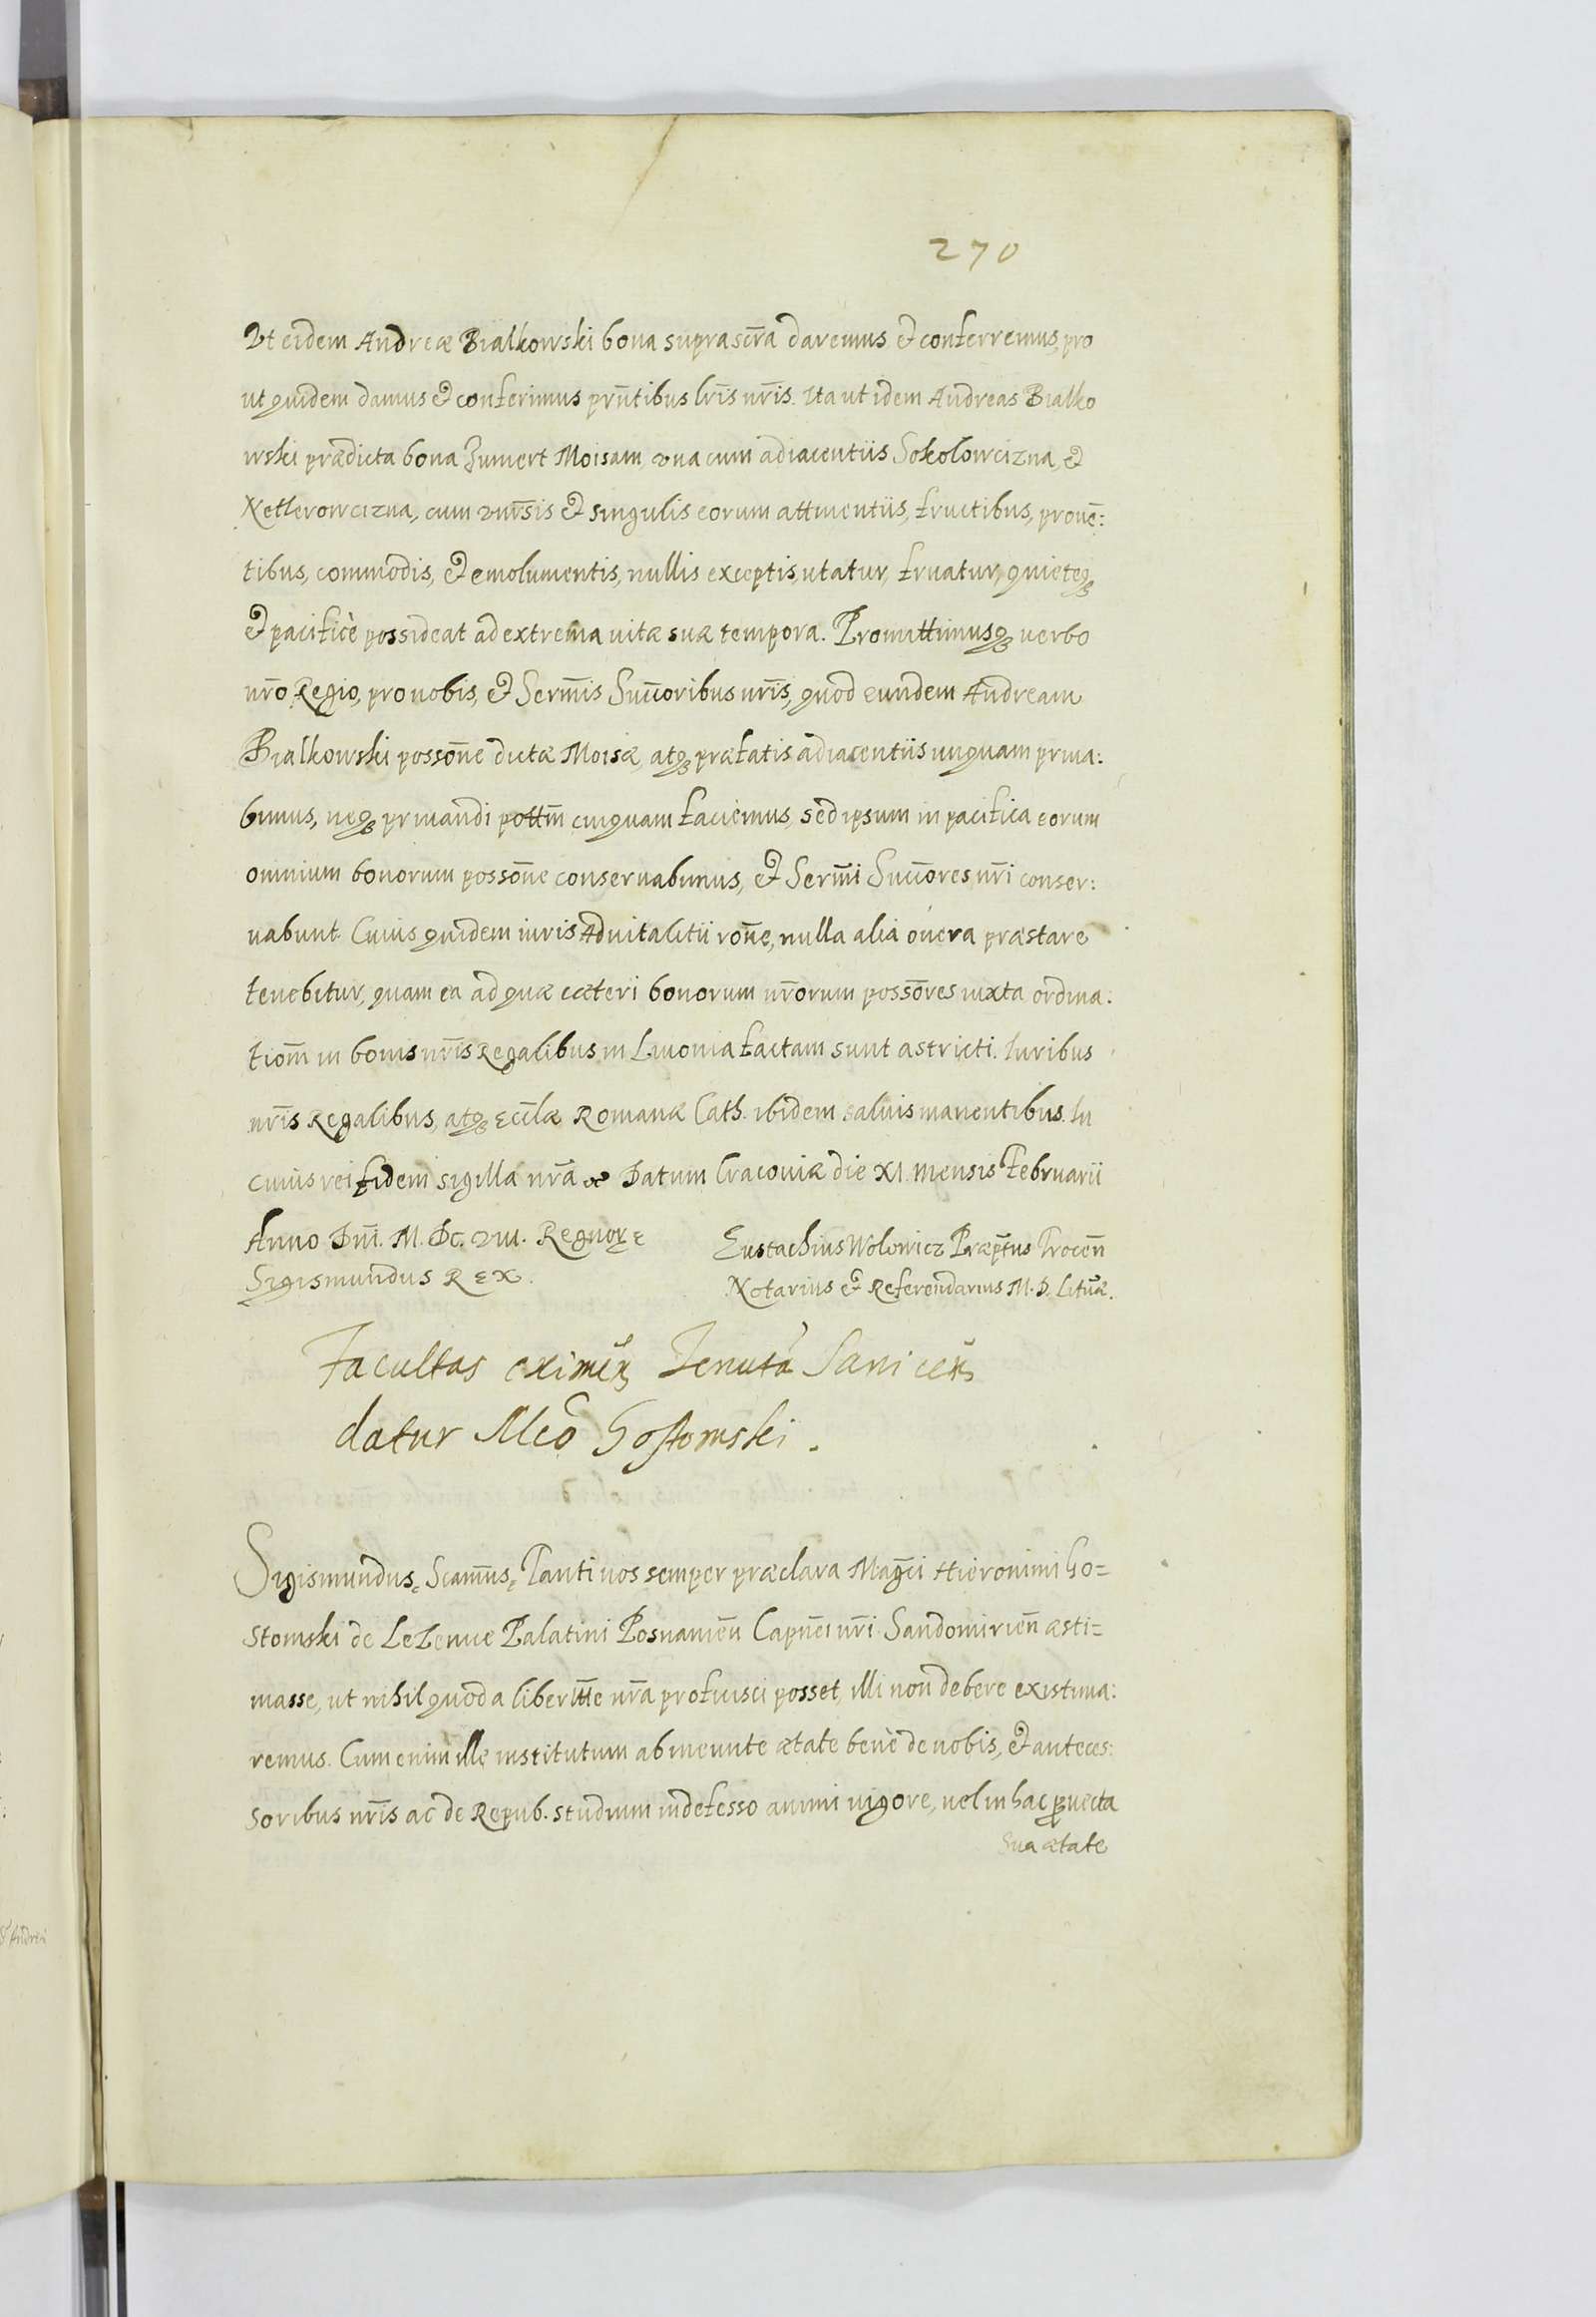 270
Vt eidem Andreæ Bialkowski bona suprascr̄a daremus et conferremus, pro
ut quidem damus et conferimus pr̄ntibus lr̄is nr̄is. Ita ut idem Andreas Bialko
wski prædicta bona Zumert Moisam, vna cum adiacentiis Sokolowcizna, et
Netlerowcizna, cum vnr̄sis et singulis eorum attinentiis, fructibus, prouē:
tibus, commodis, et emolumentis, nullis exceptis, utatur, fruatur, quieteq3
et pacificè possideat ad extrema uitæ suæ tempora. Promittimusq3 uerbo
nr̄o Regio, pro nobis, et Serm̄is Succ̄oribus nr̄is, quod eundem Andream
Bialkowski posson̄e dictæ Moisæ, atq3 præfatis adiacentiis unquam priua:
bimus, neq3 priuandi pott̄m cuiquam faciemus, sed ipsum in pacifica eorum
omnium bonorum posson̄e conseruabimus, et Serm̄i Succ̄ores nr̄i conser:
uabunt. Cuius quidem iuris Aduitalitii ron̄e, nulla alia onera præstare
tenebitur, quam ea ad quæ cæteri bonorum nr̄orum poss̄ores iuxta ordina:
tiom̄ in bonis nr̄is Regalibus in Liuonia factam sunt astricti. Iuribus
nr̄is Regalibus, atq3 Eccl̄æ Romanæ Cath. ibidem saluis manentibus. In
cuius rei fidem sigilla nr̄a &c Datum Cracouiæ die XI mensis Februarii
Anno Dn̄i. M. DC. VIII. Regnor̄
Eustachius Wolowicz Præp̄tus Trocen̄
Sigismundus REX.
Notarius et Referendarius M. D. Litūæ.
Facultas eximen̄ Tenutā Sanicen̄
datur Mc̄o Gostomski.
Sigismundus, Scam̄us, Tanti nos semper præclara Mag̅ci Hieronimi Go=
stomski de Lezenice Palatini Posnanien̄ Capn̄ei nr̄i Sandomirien̄ æsti=
masse, ut nihil quod a libertt̄e nr̄a proficisci posset, illi non debere existima:
remus. Cum enim ille institutum ab ineunte ætate benè de nobis, et anteces:
soribus nr̄is ac de Repub. studium indefesso animi uigore, uel in hac ꝓuecta
sua ætate